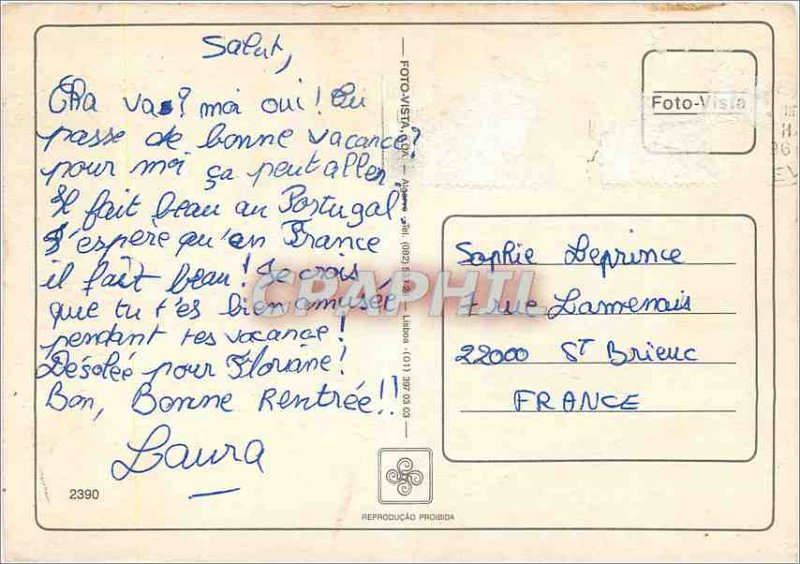 Salut,
Cha vas? moi oui! Tu
passe de bonne vacance?
pour moi ça peut aller
Il fait beau au Portugal!
J'espère qu'en France
il fait beau! Je crois
que tu t'es bien amusée
pendant tes vacance!
Désolée pour Floriane!
Bon, Bonne Rentrée!!
Laura
2390
FOTO-VISTA, LDA — Algarve - Tel. (082)
Lisboa - (01) 397 03 03
REPRODUÇÃO PROIBIDA
Foto-Vista
96
Sophie Leprince
7 rue Lamenais
22000 ST Brieuc
FRANCE
CPAPHIL